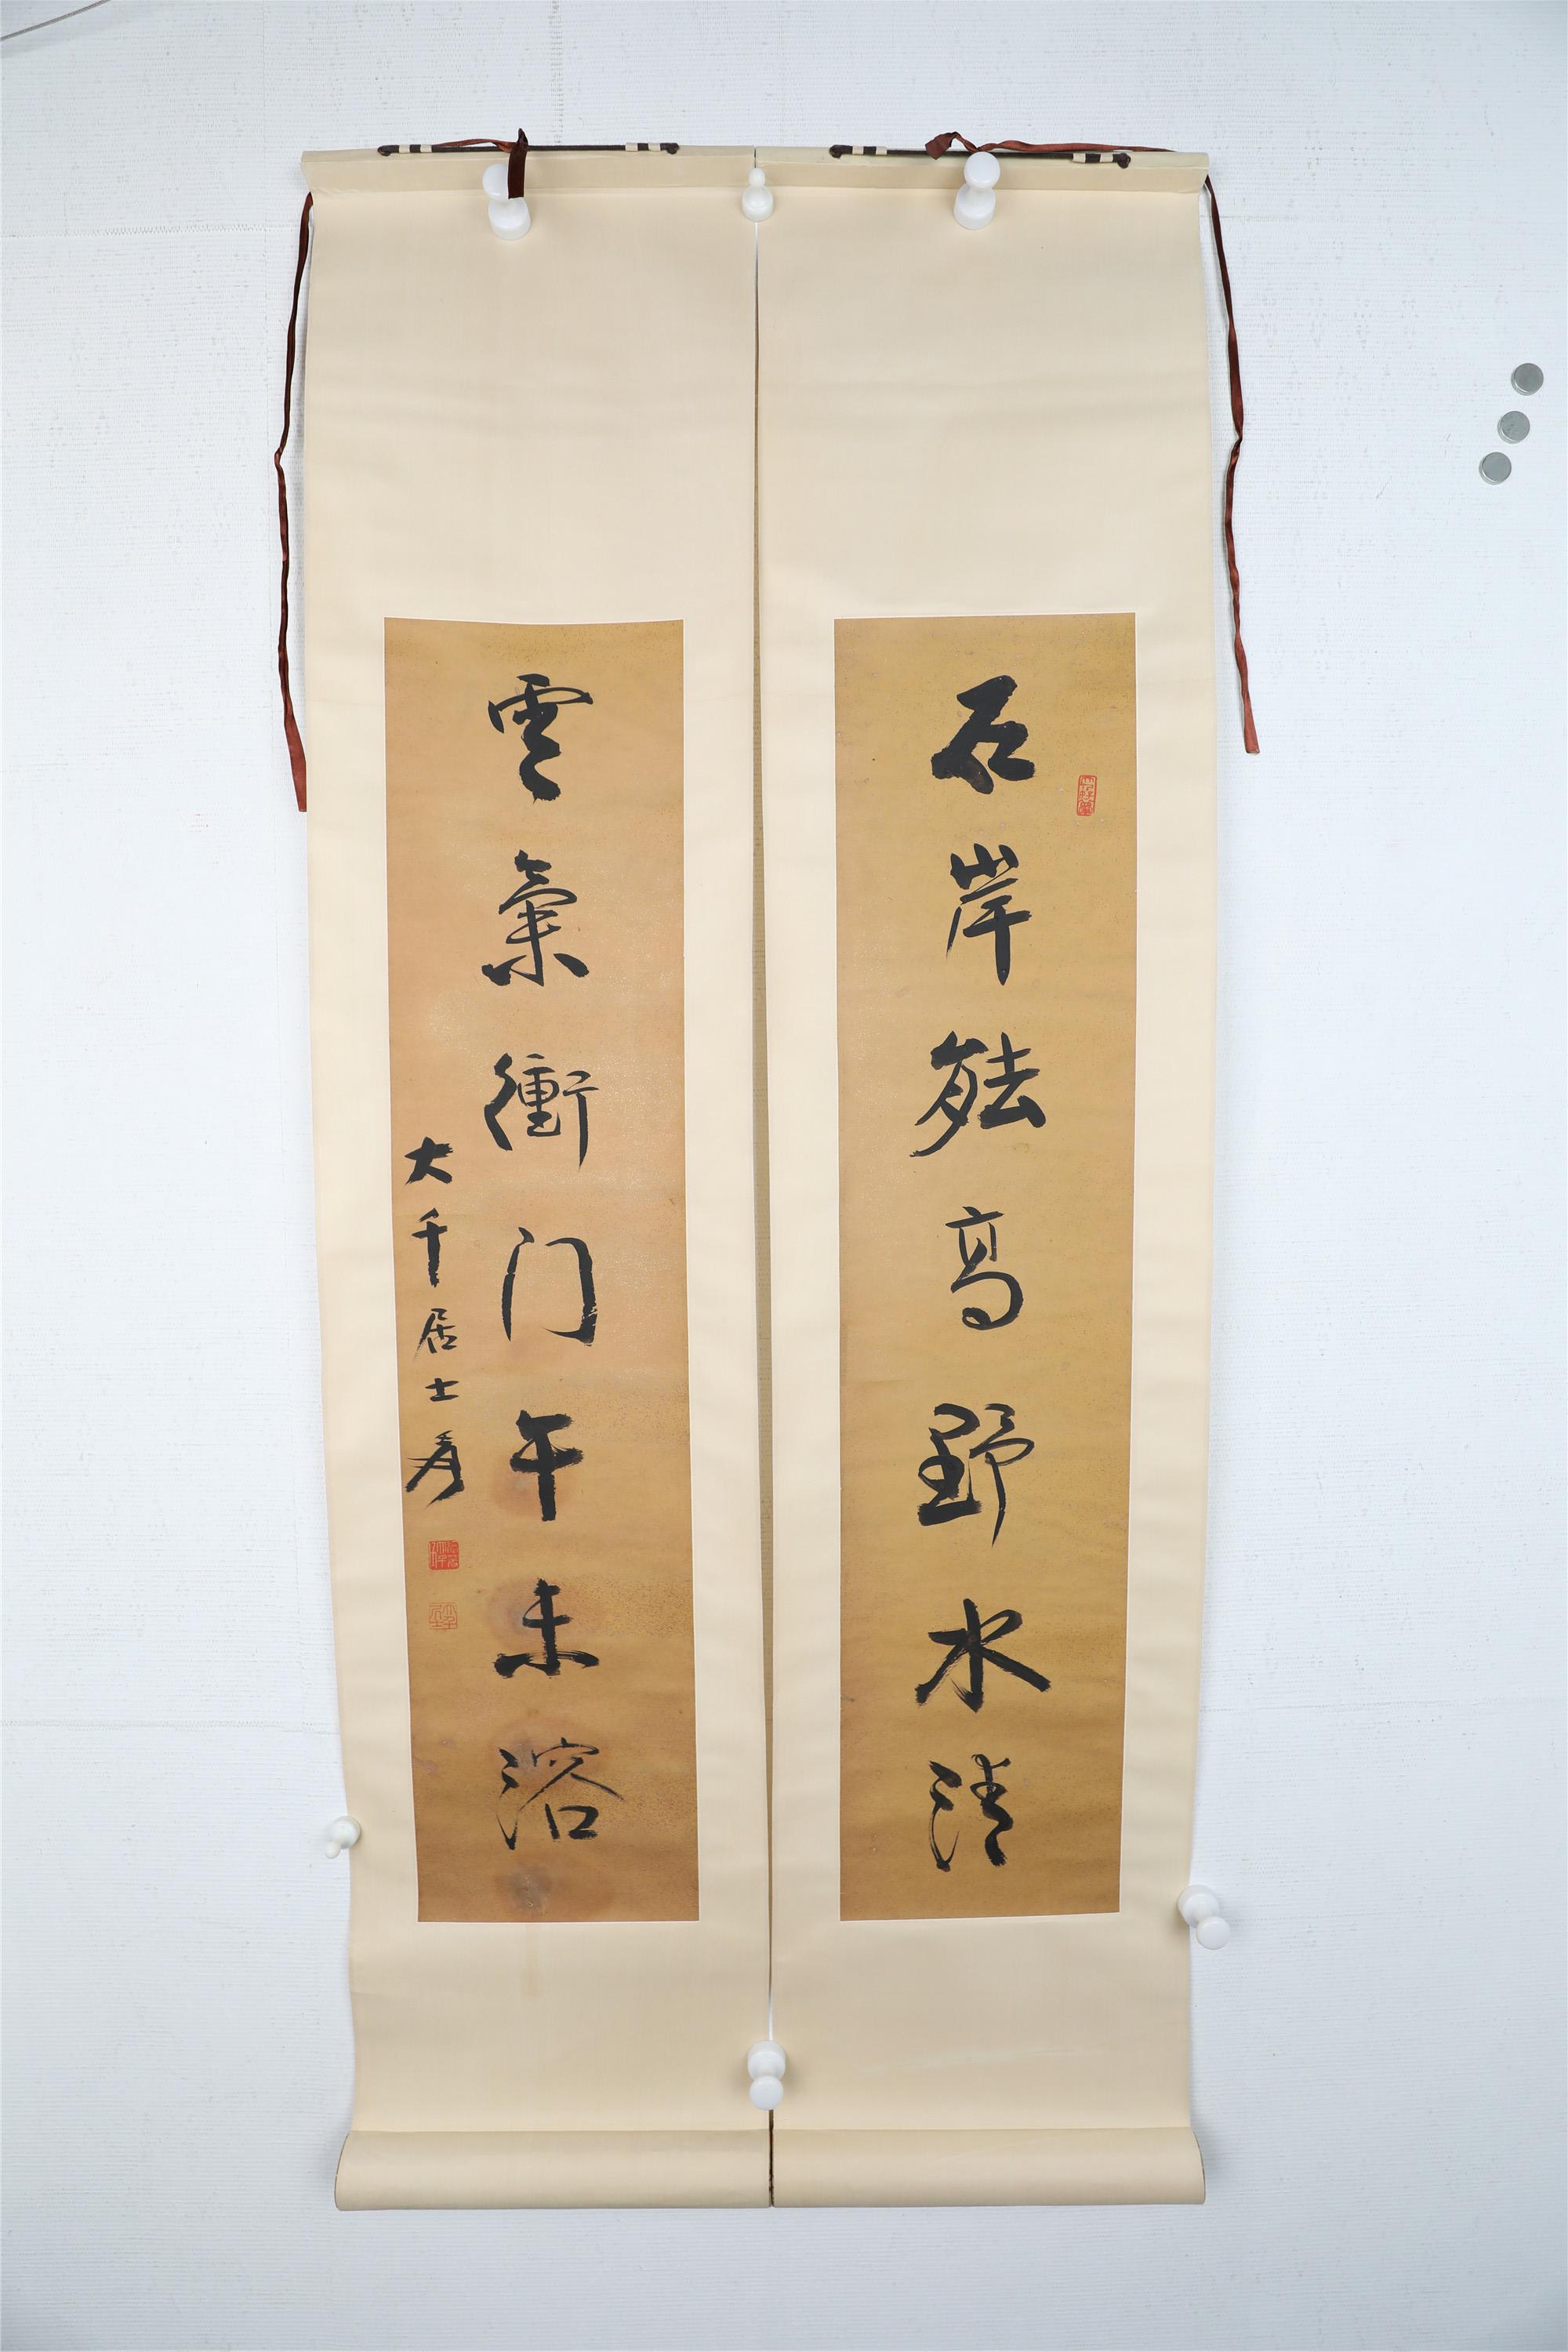 石岸能高野水清
雲氣衝门午未溶
大千居士爰